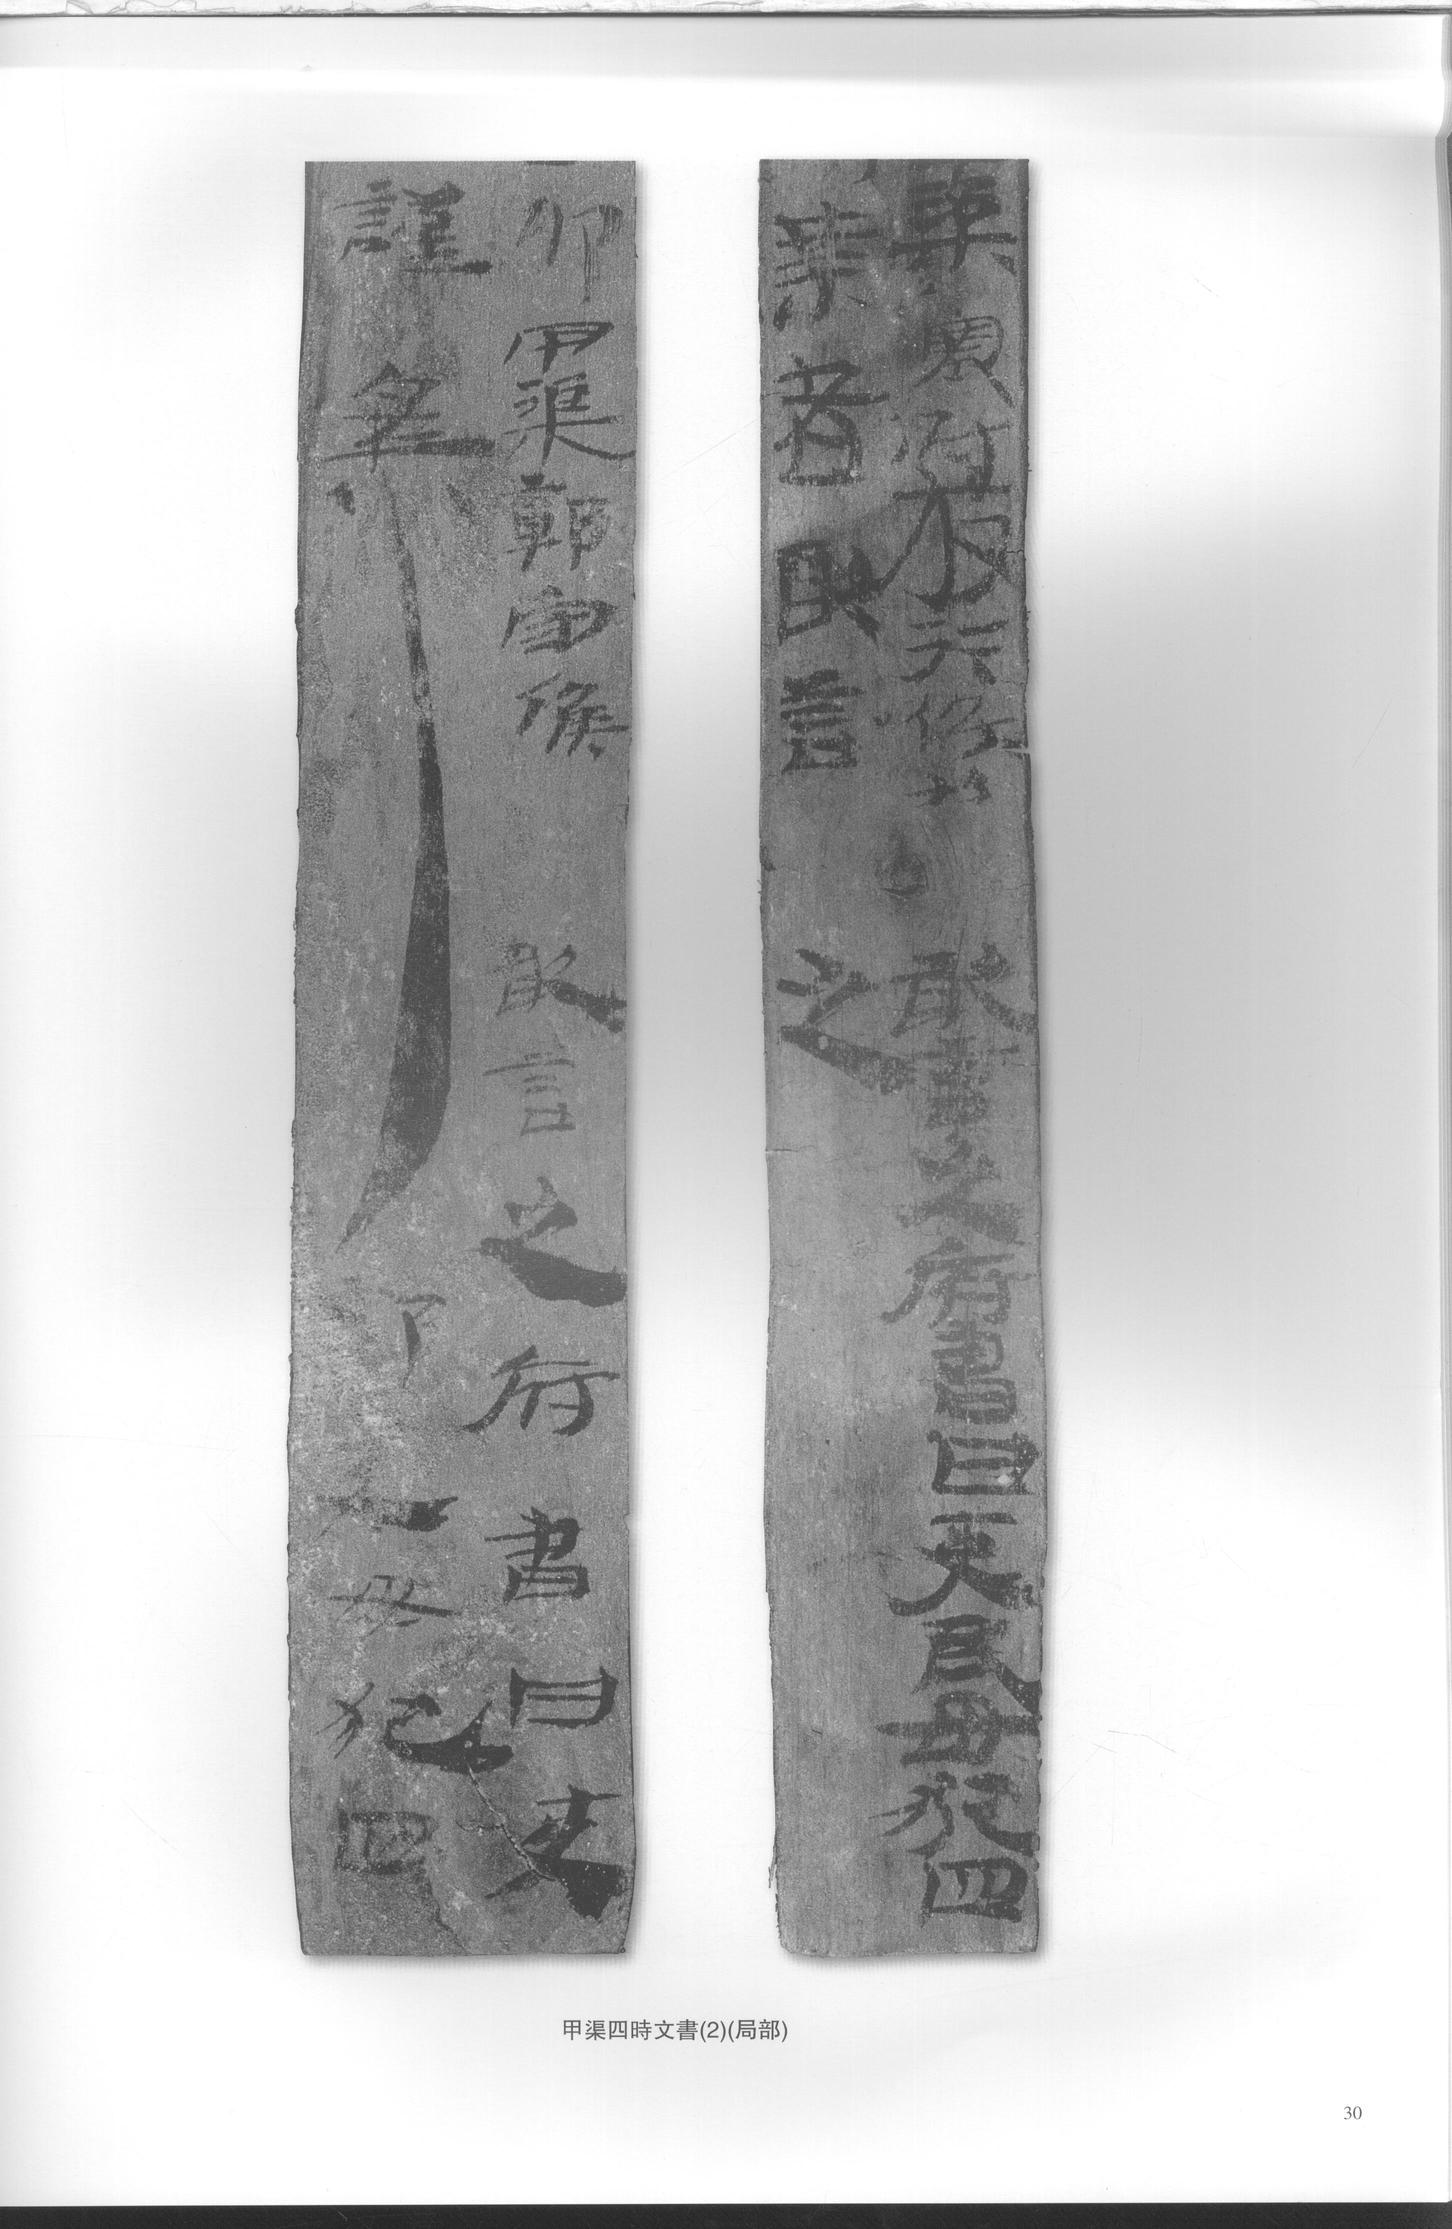 渠塞尉放行候事　敢言之府書曰吏民毋犯四
禁者敢言　之
卯甲渠鄣守候　敢言之府書曰吏
謹案　部吏毋犯四
甲渠四時文書(2)(局部)
30